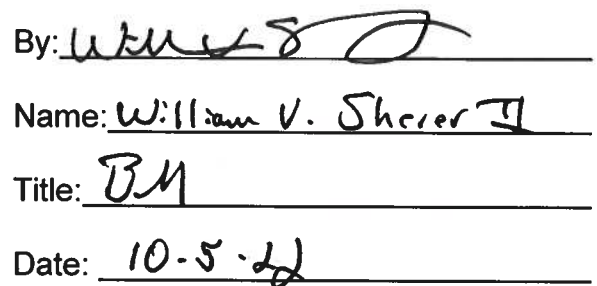 By:
Name: William V. Sherer II
Title: BM
Date: 10-5-22